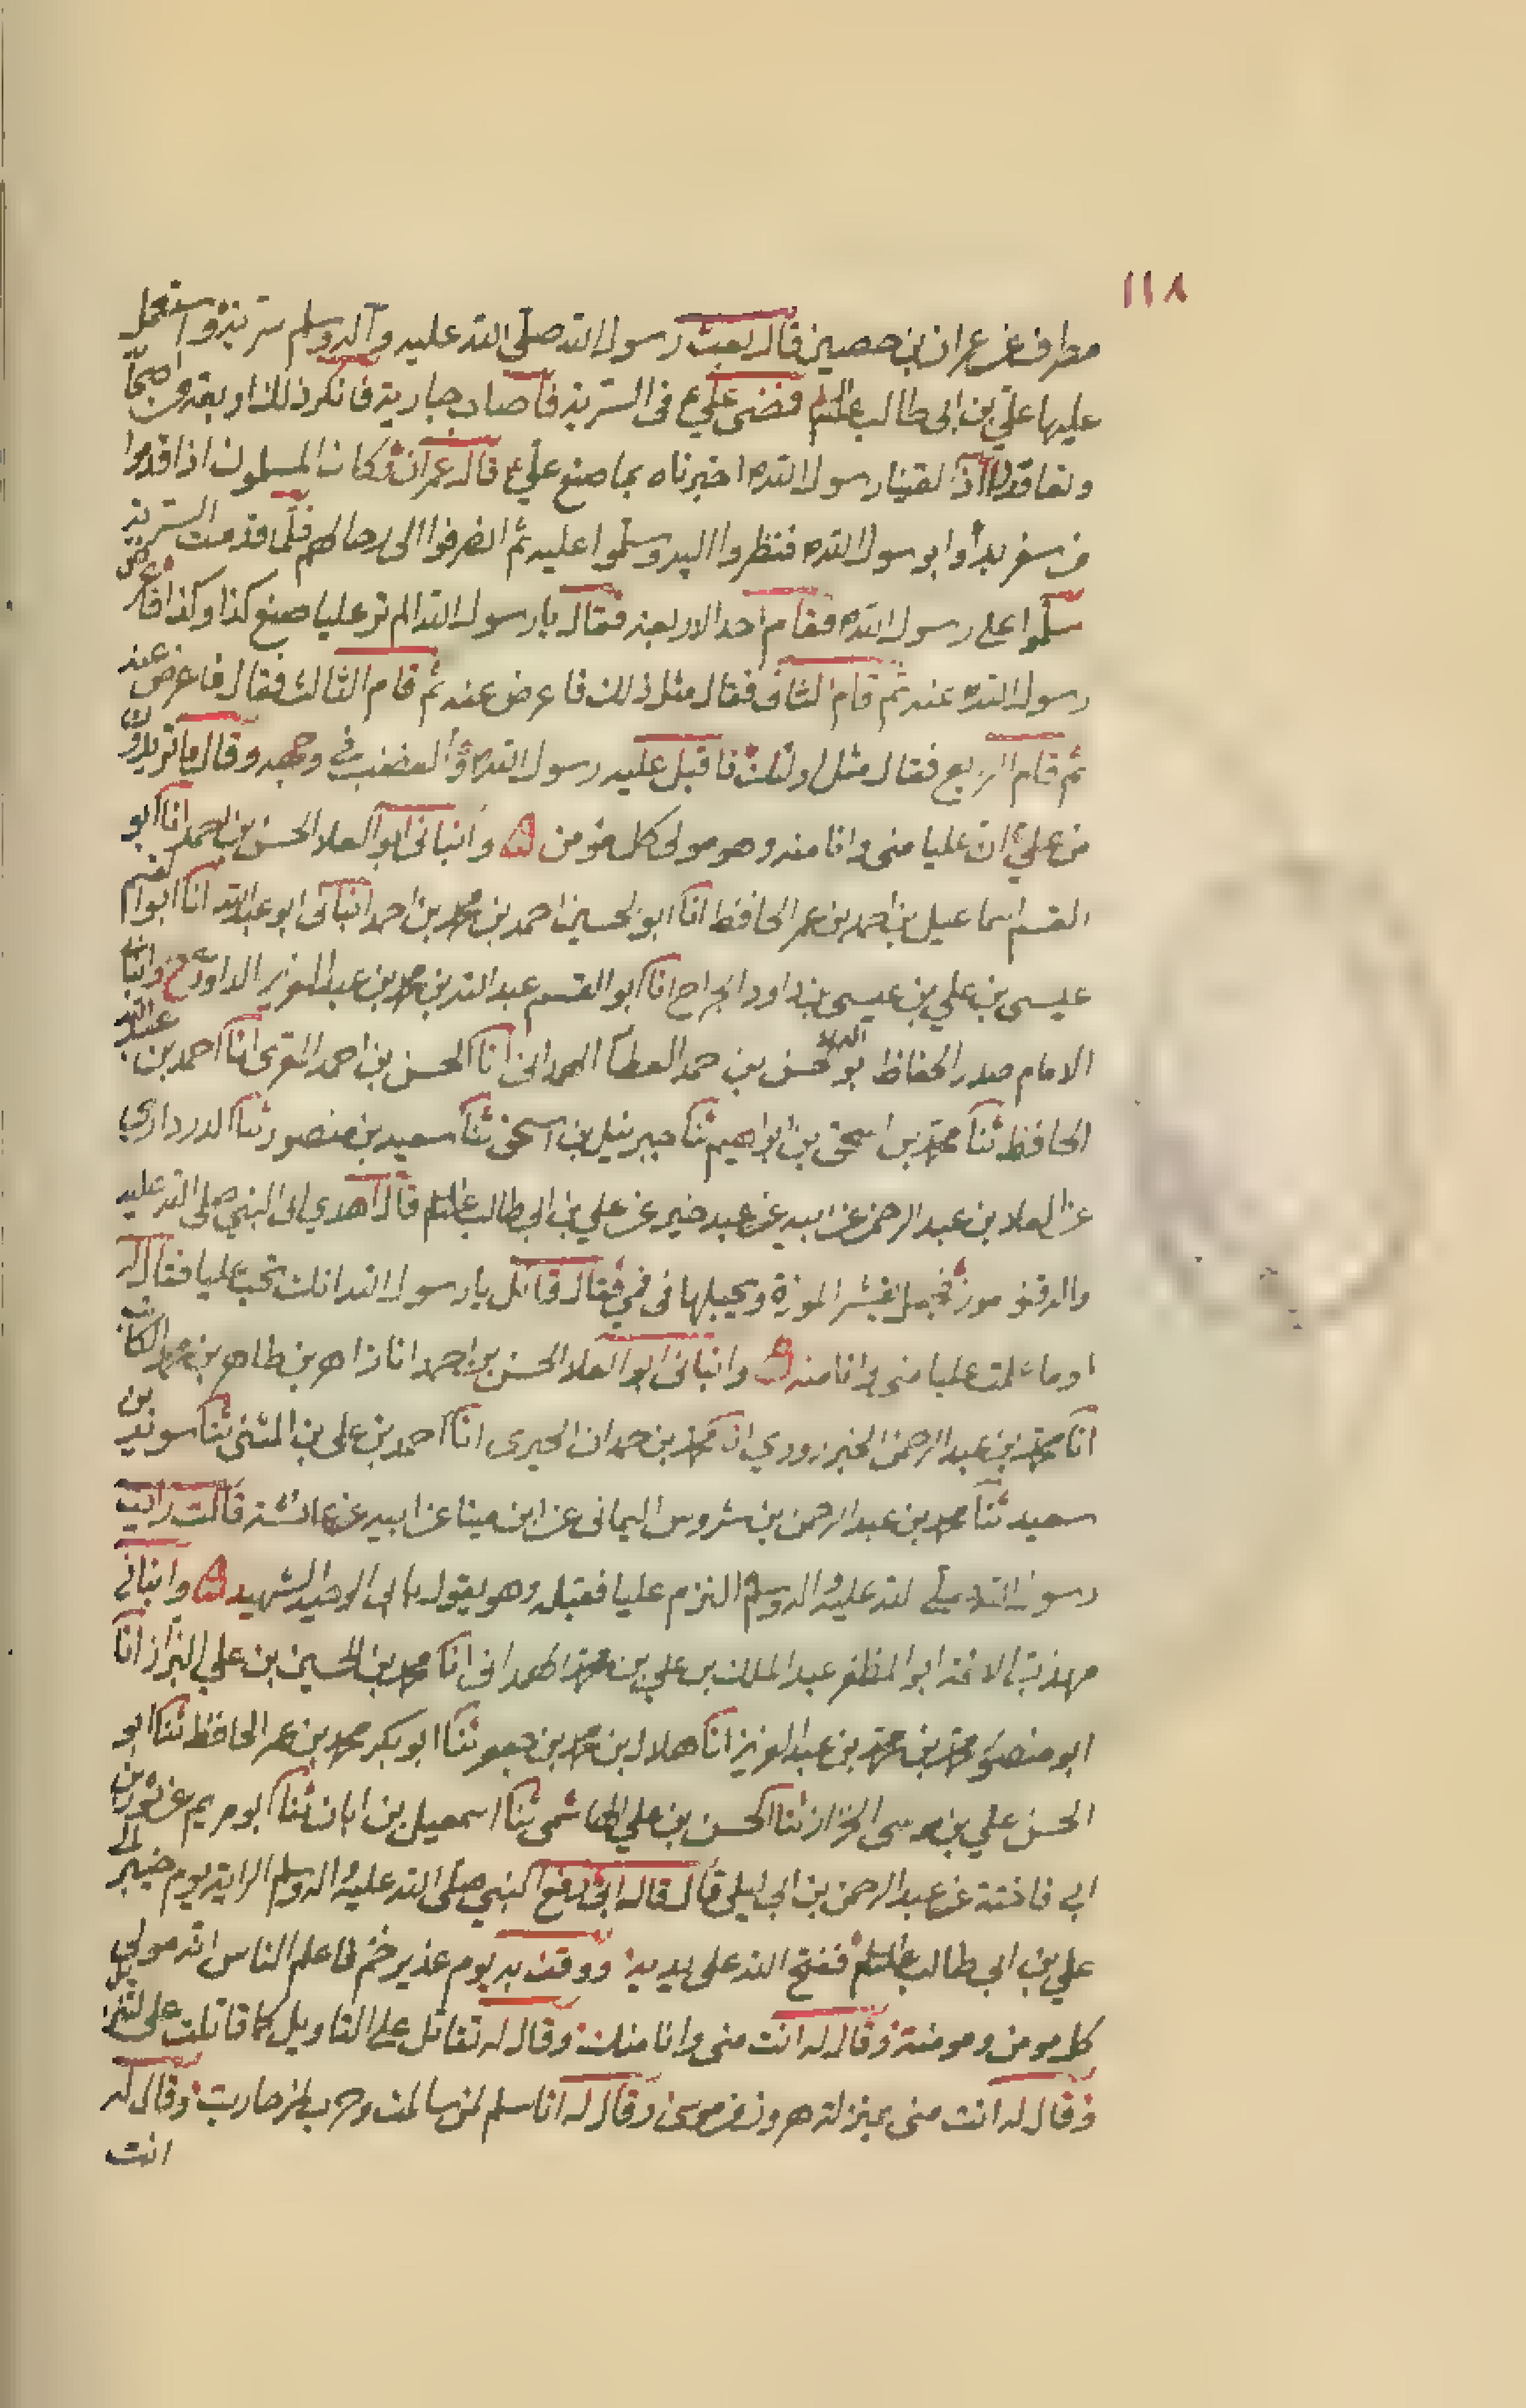 ١١٨
مطرف عن عمران بن حصين قال بعث رسول الله صلى الله عليه وآله وسلم سرية واستعمل
عليها علي بن ابى طالب عليلم فمضى علي ع فى السرية فاصاب جارية فانكر ذلك اربعة من اصحا
وتعاقدوا اذا لقينا رسول الله ص اخبرناه بما صنع علي ع قال عمران وكان المسلمون اذا قدموا
من سفر بدأوا برسول الله ص فنظروا اليه وسلموا عليه ثم انصرفوا الى رحالهم فلما قدمت السرية
سلموا على رسول الله ص فقام احد الاربعة فقال يا رسول الله الم تر عليا صنع كذا وكذا فاعرض
رسول الله ص عنه ثم قام الثانى فقال مثل ذلك فاعرض عنه ثم قام الثالث فقال فاعرض عنه
ثم قام الرابع فقال مثل ذلك فاقبل عليه رسول الله ص والغضب في وجهه وقال ما تريدون
من علي ان عليا منى وانا منه وهو مولى كل مؤمن وانبانى ابو العلا الحسن بن احمد انا ابو
القسم اسماعيل بن احمد بن عمر الحافظ انا ابو الحسين احمد بن محمد بن احمد انبانى ابو عبد الله انا ابو القسم
عيسى بن علي بن عيسى بن داود الجراح انا ابو القسم عبد الله بن محمد بن عبد العزيز
الامام صدر الحفاظ ابو العلا حسن بن حمد العطار الهمدانى انا الحسن بن احمد المقرى انا احمد بن عبد الله
الحافظ ثنا محمد بن اسحق بن ابراهيم ثنا جبرئيل بن اسحق ثنا سعيد بن منصور ثنا الدرداري
عن العلا بن عبد الرحمن عن ابيه عن عبد خير عن علي بن ابي طالب عليلم قال اهدي الى النبي صلى الله عليه
واله قنو موز فجعل يقشر الموزة ويجعلها فى فمي فقال قائل يا رسول الله انك تحب عليا فقال له
او ما علمت عليا منى وانا منه وانبانى ابو العلا الحسن بن احمد انا زاهر بن طاهر بن محمد الكاتب
انا محمد بن عبد الرحمن الخبرزوردي انا محمد بن حمدان الحيرى انا احمد بن على بن المثنى ثنا سويد بن
سعيد ثنا محمد بن عبد الرحمن بن شروس اليمانى عن ابن مينا عن ابيه عن عائشة قالت رايت
رسول الله صلى الله عليه واله وسلم التزم عليا فقبله وهو يقول بابى الوحيد الشهيد وانبانى
مهذب الائمة ابو المظفر عبد الملك بن علي بن محمد الهمدانى انا محمد بن الحسين بن علي البزاز انا
ابو منصور محمد بن محمد بن عبد العزيز انا هلال بن محمد بن جعفر ثنا ابو بكر محمد بن عمر الحافظ ثنا ابو
الحسن علي بن موسى الخزاز ثنا الحسن بن علي الهاشمى ثنا اسمعيل بن ابان ثنا ابو مريم عن ثور بن
ابى فاختة عن عبد الرحمن بن ابي ليلى قال قال ابى دفع النبي صلى الله عليه واله وسلم الراية يوم خيبر الى
علي بن ابي طالب عليلم ففتح الله على يديه ووقف به يوم غدير خم فاعلم الناس انه مولى
كل مومن ومومنة وقال له انت منى وانا منك وقال له تقاتل على التاويل كما قاتلت على التنزيل
وقال له انت منى بمنزلة هرون من موسى وقال له انا سلم لمن سالمت وحرب لمن حاربت وقال له
انت